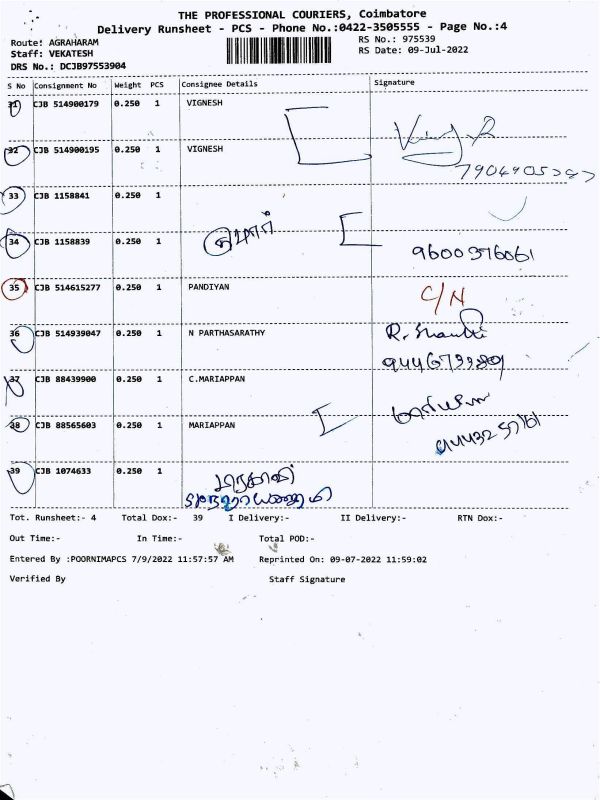 THE PROFESSIONAL COURIERS, Coimbatore
Delivery Runsheet - PCS - Phone No.:0422-3505555 - Page No.:4
Route: AGRAHARAM RS No.: 975539
Staff: VEKATESH RS Date: 09-Jul-2022
DRS No.: DCJB97553904
S No Consignment No Weight PCS Consignee Details Signature
31 CJB 514900179 0.250 1 VIGNESH
32 CJB 514900195 0.250 1 VIGNESH
33 CJB 1158841 0.250 1
34 CJB 1158839 0.250 1
9600376061
35 CJB 514615277 0.250 1 PANDIYAN C/N
36 CJB 514939047 0.250 1 N PARTHASARATHY
37 CJB 88439900 0.250 1 C.MARIAPPAN
38 CJB 88565603 0.250 1 MARIAPPAN
39 CJB 1074633 0.250 1
Tot. Runsheet:- 4 Total Dox:- 39 I Delivery:- II Delivery:- RTN Dox:-
Out Time:- In Time:- Total POD:-
Entered By :POORNIMAPCS 7/9/2022 11:57:57 AM Reprinted On: 09-07-2022 11:59:02
Verified By Staff Signature